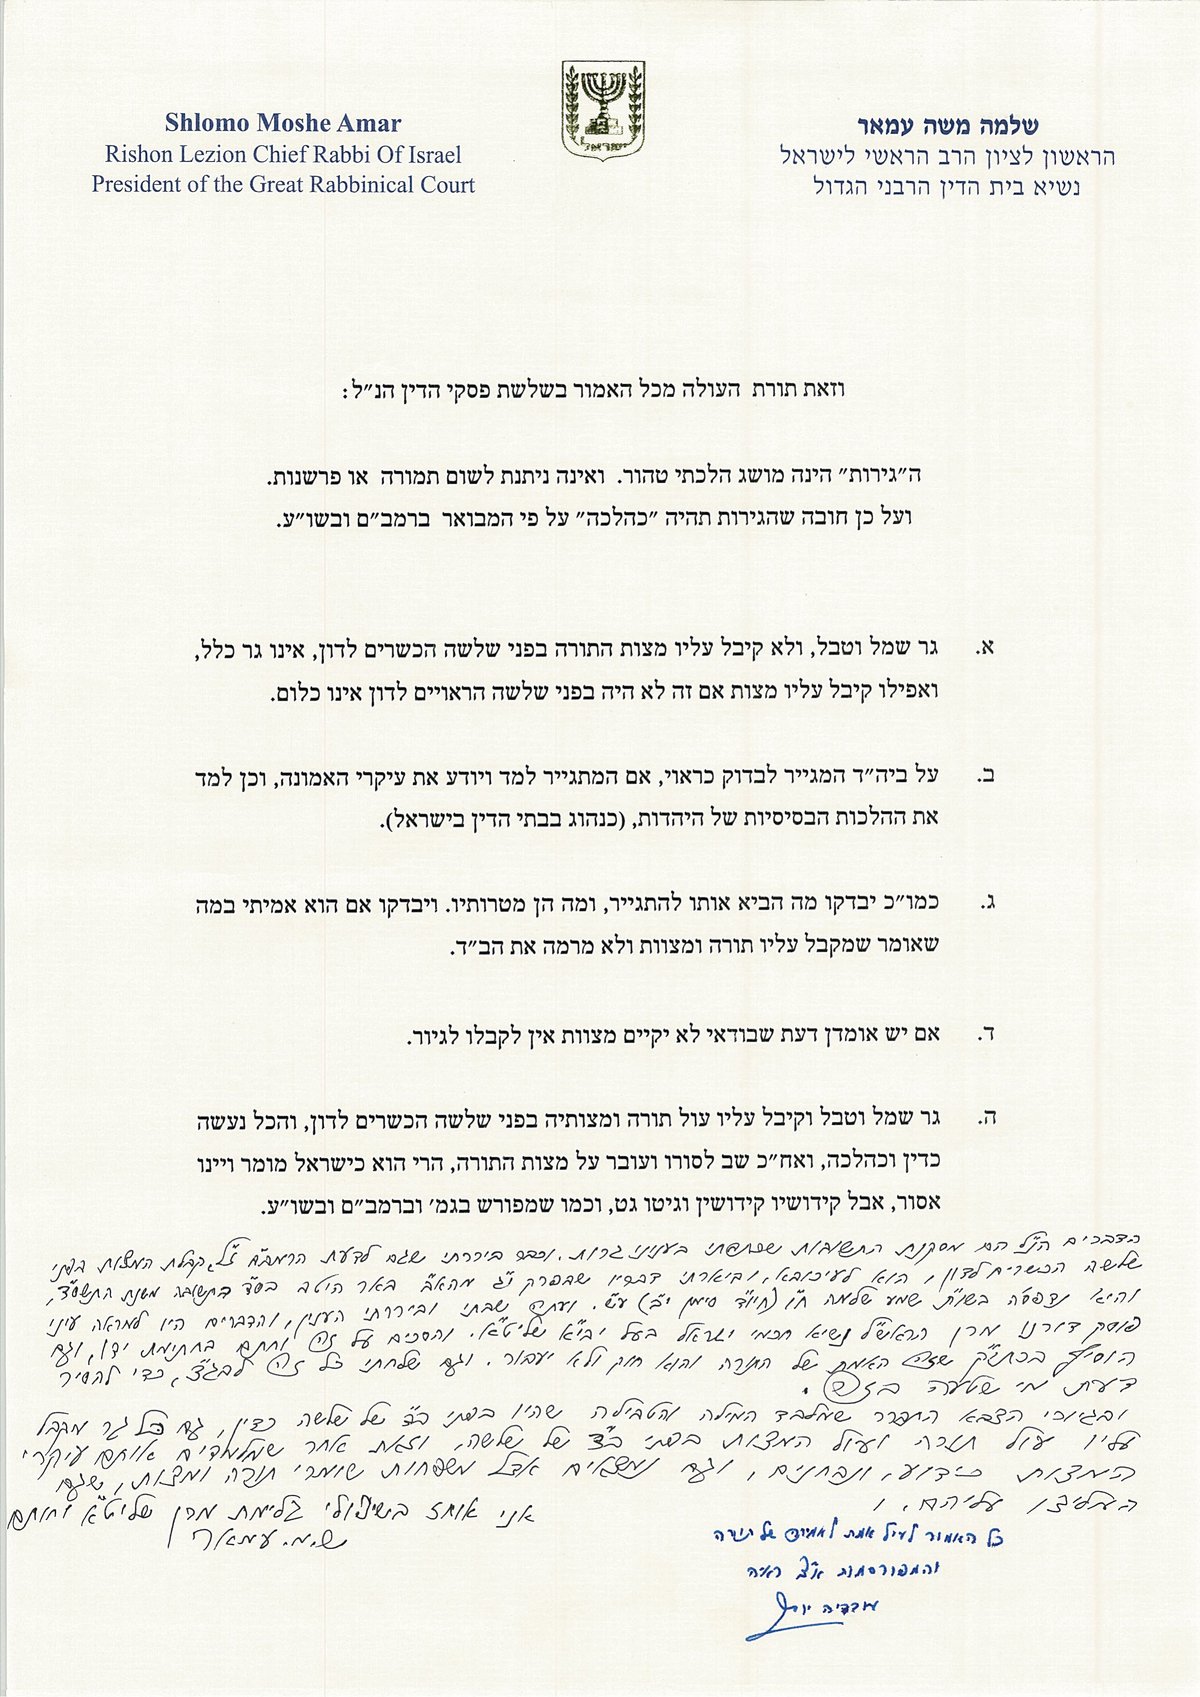 Shlomo Moshe Amar
Rishon Lezion Chief Rabbi Of Israel
President of the Great Rabbinical Court
ישראל
שלמה משה עמאר
הראשון לציון הרב הראשי לישראל
נשיא בית הדין הרבני הגדול
וזאת תורת העולה מכל האמור בשלשת פסקי הדין הנ״ל:
ה״גירות״ הינה מושג הלכתי טהור. ואינה ניתנת לשום תמורה או פרשנות.
ועל כן חובה שהגירות תהיה ״כהלכה״ על פי המבואר ברמב״ם ובשו״ע.
א. גר שמל וטבל, ולא קיבל עליו מצות התורה בפני שלשה הכשרים לדון, אינו גר כלל,
ואפילו קיבל עליו מצות אם זה לא היה בפני שלשה הראויים לדון אינו כלום.
ב. על ביה״ד המגייר לבדוק כראוי, אם המתגייר למד ויודע את עיקרי האמונה, וכן למד
את ההלכות הבסיסיות של היהדות, (כנהוג בבתי הדין בישראל).
ג. כמו״כ יבדקו מה הביא אותו להתגייר, ומה הן מטרותיו. ויבדקו אם הוא אמיתי במה
שאומר שמקבל עליו תורה ומצוות ולא מרמה את הב״ד.
ד. אם יש אומדן דעת שבודאי לא יקיים מצוות אין לקבלו לגיור.
ה. גר שמל וטבל וקיבל עליו עול תורה ומצותיה בפני שלשה הכשרים לדון, והכל נעשה
כדין וכהלכה, ואח״כ שב לסורו ועובר על מצות התורה, הרי הוא כישראל מומר ויינו
אסור, אבל קידושיו קידושין וגיטו גט, וכמו שמפורש בגמ׳ וברמב״ם ובשו״ע.
הדברים הנ״ל הם מסקנת התשובות שכתבתי בעניני גרות. וכבר ביררתי שגם לדעת הרמב״ם ז״ל, קבלת המצות בפני
שלשה הכשרים לדון, הוא לעיכובא, וביארתי דבריו שבפרק י״ג מהא״ב באר היטב בס״ד בתשובה משנת התשס״ג,
והיא נדפסה בשו״ת שמע שלמה ח״ו (חיו״ד סימן י״ב) ע״ש. ועתה שבתי וביררתי הענין, והדברים היו למראה עיני
פוסק דורנו מרן הראש״ל נשיא חכמי ישראל בעל יבי״א שליט״א. והסכים על זה וחתם בחתימת ידו, וגם
הוסיף בכתי״ק שזה האמת של התורה והוא חוק ולא יעבור. וגם שלחתי כל זה לבג״צ, כדי להסיר
דעת מי שטעה בזה.
ובגיורי הצבא התברר שמלבד המילה והטבילה שהיו בפני ב״ד של שלשה כדין, גם כל גר מקבל
עליו עול תורה ועול המצות בפני ב״ד של שלשה, וזאת אחר שמלמדים אותם עיקרי
המצות כידוע, ונבחנים, וגם נמצאים אצל משפחות שומרי תורה ומצות, שגם
המליצו עליהם.
אני אוחז בשיפולי גלימת מרן שליט״א וחותם
ש.מ. עמאר
כל האמור לעיל אמת לאמיתה של תורה
והמפורסמות א״צ ראיה
עובדיה יוסף